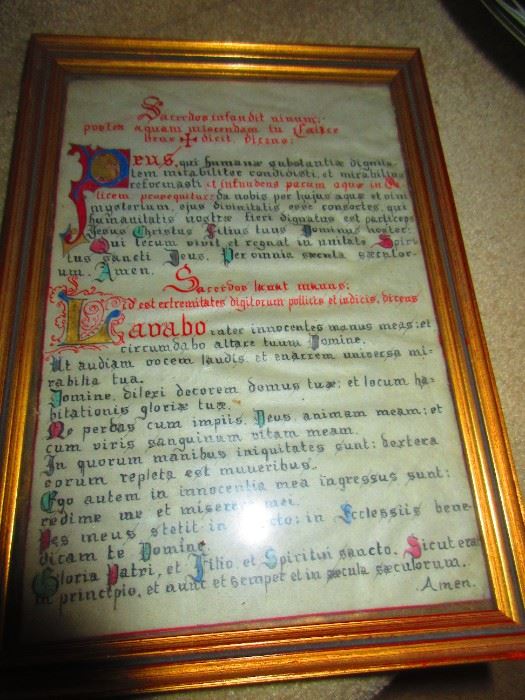 Sacerdos infundit vinum;
postea aquam miscendam in Calice
dicit, dicens:
Deus, qui humanæ substantiæ dignita-
tem mirabiliter condidisti, et mirabilius
reformasti et infundens parum aquæ in Ca
licem prosequitur: da nobis per hujus aquæ et vini
mysterium, ejus divinitatis esse consortes, qui
humanitatis nostræ fieri dignatus est particeps
Jesus Christus Filius tuus Dominus noster:
Qui tecum vivit et regnat in unitate Spiri
tus sancti Deus, Per omnia sæcula sæculor-
um. Amen.
Sacerdos lavat manus;
id est extremitates digitorum pollicis et indicis, dicens
Lavabo inter innocentes manus meas: et
circumdabo altare tuum Domine.
Ut audiam vocem laudis, et enarrem universa mi-
rabilia tua.
Domine, dilexi decorem domus tuæ; et locum ha-
bitationis gloriæ tuæ.
Ne perdas cum impiis, Deus animam meam; et
cum viris sanguinum vitam meam.
In quorum manibus iniquitates sunt: dextera
eorum repleta est muneribus.
Ego autem in innocentia mea ingressus sunt:
redime me et miserere mei.
Pes meus stetit in directo; in Ecclessiis bene-
dicam te Domine.
Gloria Patri, et Filio, et Spiritui sancto. Sicut era
in principio, et nunc et semper et in sæcula sæculorum.
Amen.